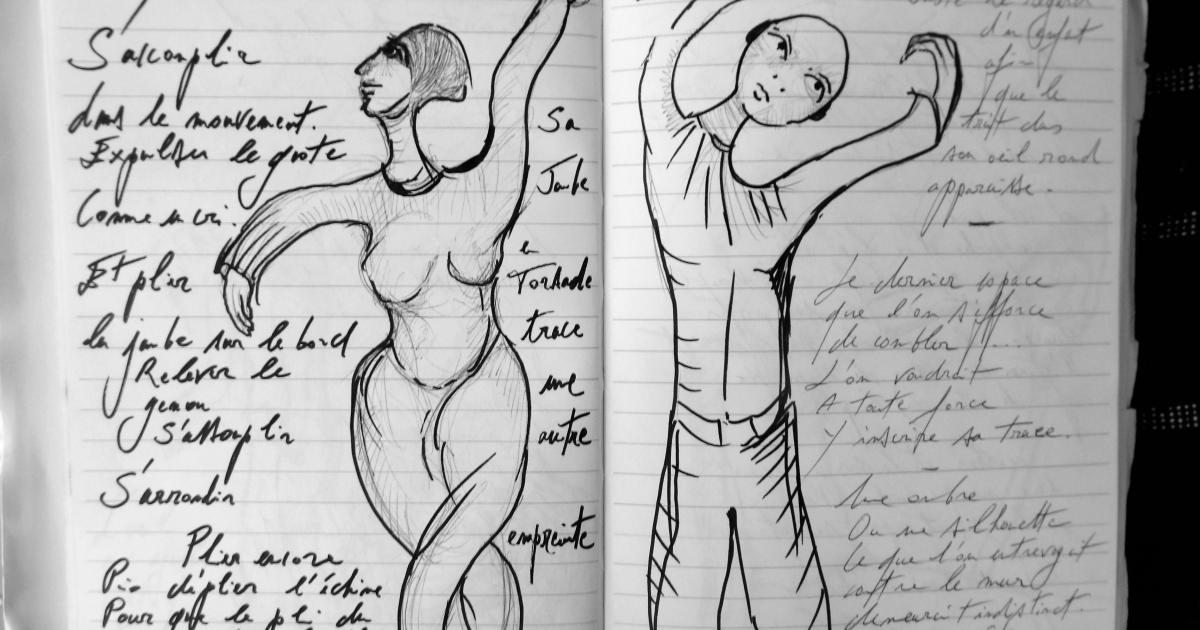 S'accomplir
dans le mouvement.
Expulser le geste
Comme un cri.
Et plier
la jambe sur le bord
Relever le
genou
S'assouplir
S'arrondir
Plier encore
Puis déplier l'échine
Pour que le pli du
Sa
Jambe
en
Torsade
trace
une
autre
empreinte
d'un
afin
que le
trait dans
son oeil rond
apparaisse.
Le dernier espace
que l'on s'efforce
de combler...
L'on voudrait
A toute force
Y inscrire sa trace.
Une ombre
Ou une silhouette
Ce que l'on entrevoyait
contre le mur
demeurait indistinct.